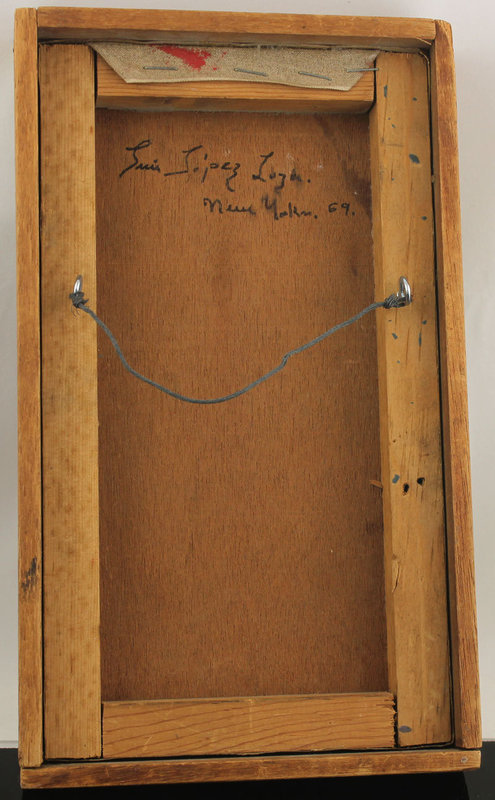 Luis López Loza.
New York. 69.